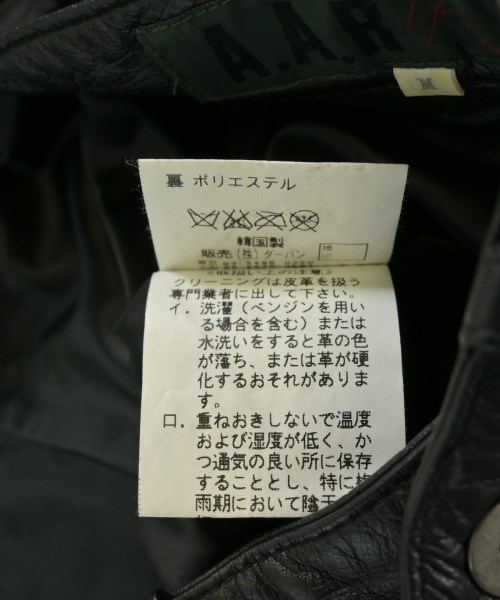 A.A.R
M
裏 ポリエステル
韓国製
販売(株)ダーバン
<取扱い上の注意>
クリーニングは皮革を扱う
専門業者に出して下さい。
イ. 洗濯(ベンジンを用い
る場合を含む)または
水洗いをすると革の色
が落ち、または革が硬
化するおそれがありま
す。
ロ. 重ねおきしないで温度
および湿度が低く、か
つ通気の良い所に保存
することとし、特に梅
雨期において陰干